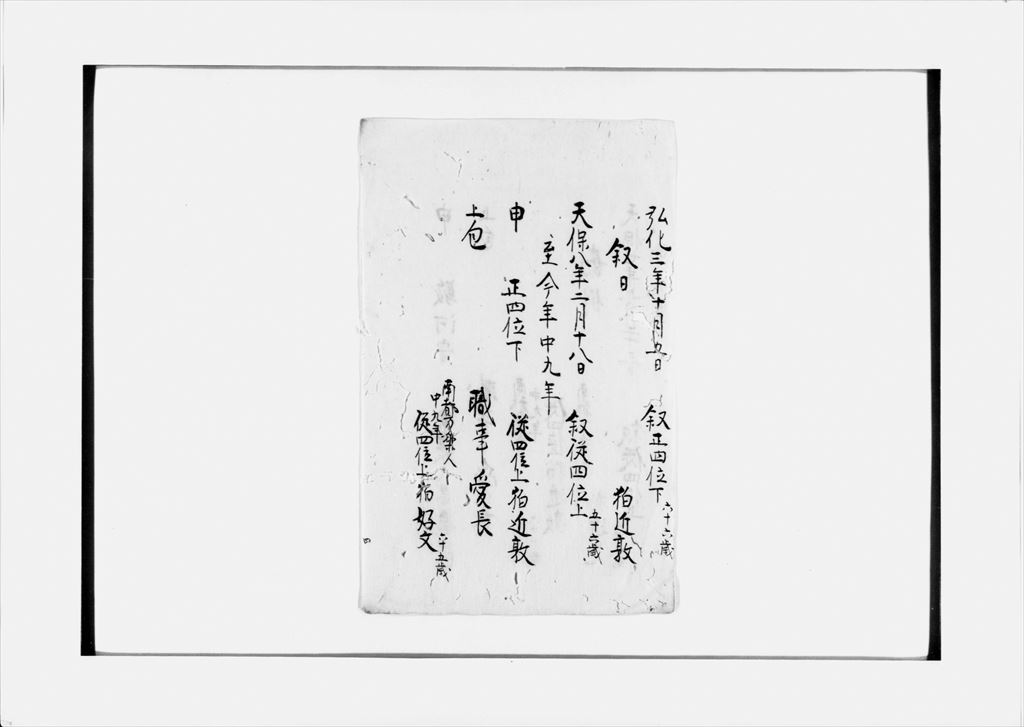 弘化三年十月五日 叙正四位下 六十六歳
叙日 狛近敦
天保八年二月十八日 叙従四位上 五十六歳
至今年中九年
申 正四位下 従四位上狛近敦
上包 職事 愛長
南都方楽人
中九年
従四位上狛好文 六十五歳
四